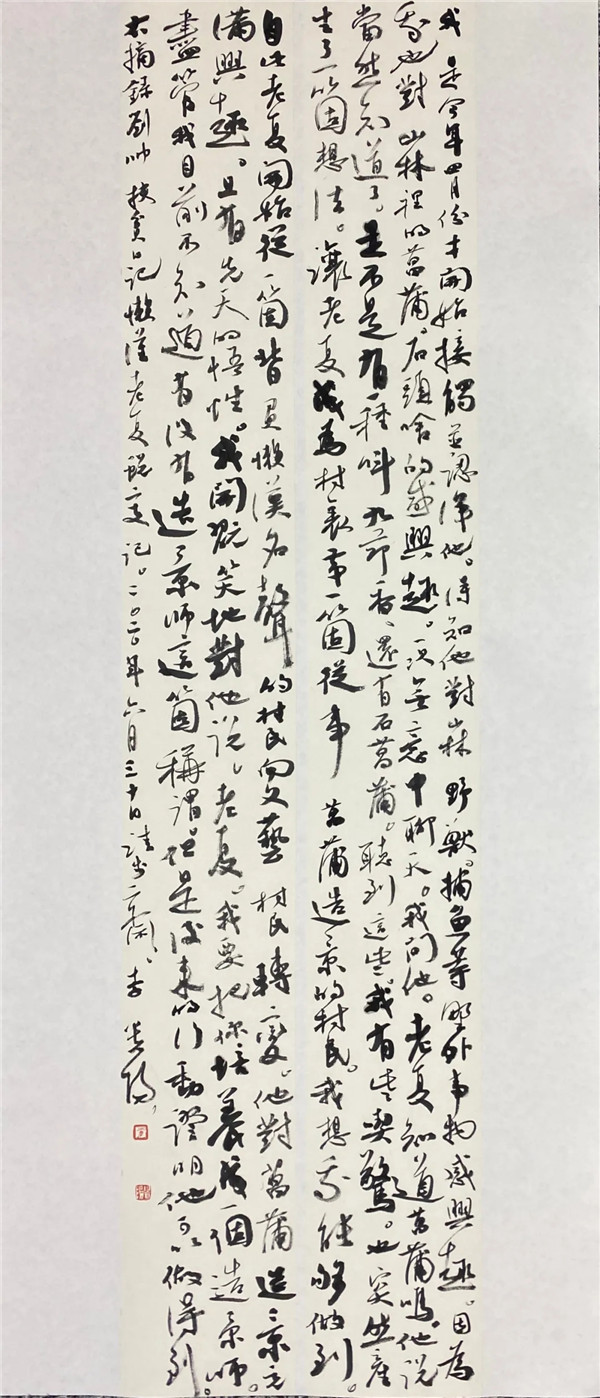 我是今年四月份才開始接觸並認識他。得知他對山林野獸。捕魚等野外事物感興趣。因為
我也對山林裡的菖蒲。石頭啥的感興趣。一次無意中聊天。我問他。老夏知道菖蒲嗎。他說
當然知道了。是不是有一種叫九節香、還有石菖蒲。聽到這些。我有些喫驚。也突然產
生了一箇想法。讓老夏成為村裏第一箇從事菖蒲造景的村民。我想我能夠做到。
自此老夏開始從一箇背負懶漢名聲的村民向文藝村民轉變。他對菖蒲造景充
滿興趣。且有先天的悟性。我開玩笑地對他說、老夏。我要把你培養成一個造景師。
儘管我目前不知道有沒有造景師這箇稱謂。但是後來的行動證明他可以做得到。
右摘錄劉帅扶貧日記懶漢老夏蛻變記。二〇二〇年六月三十日